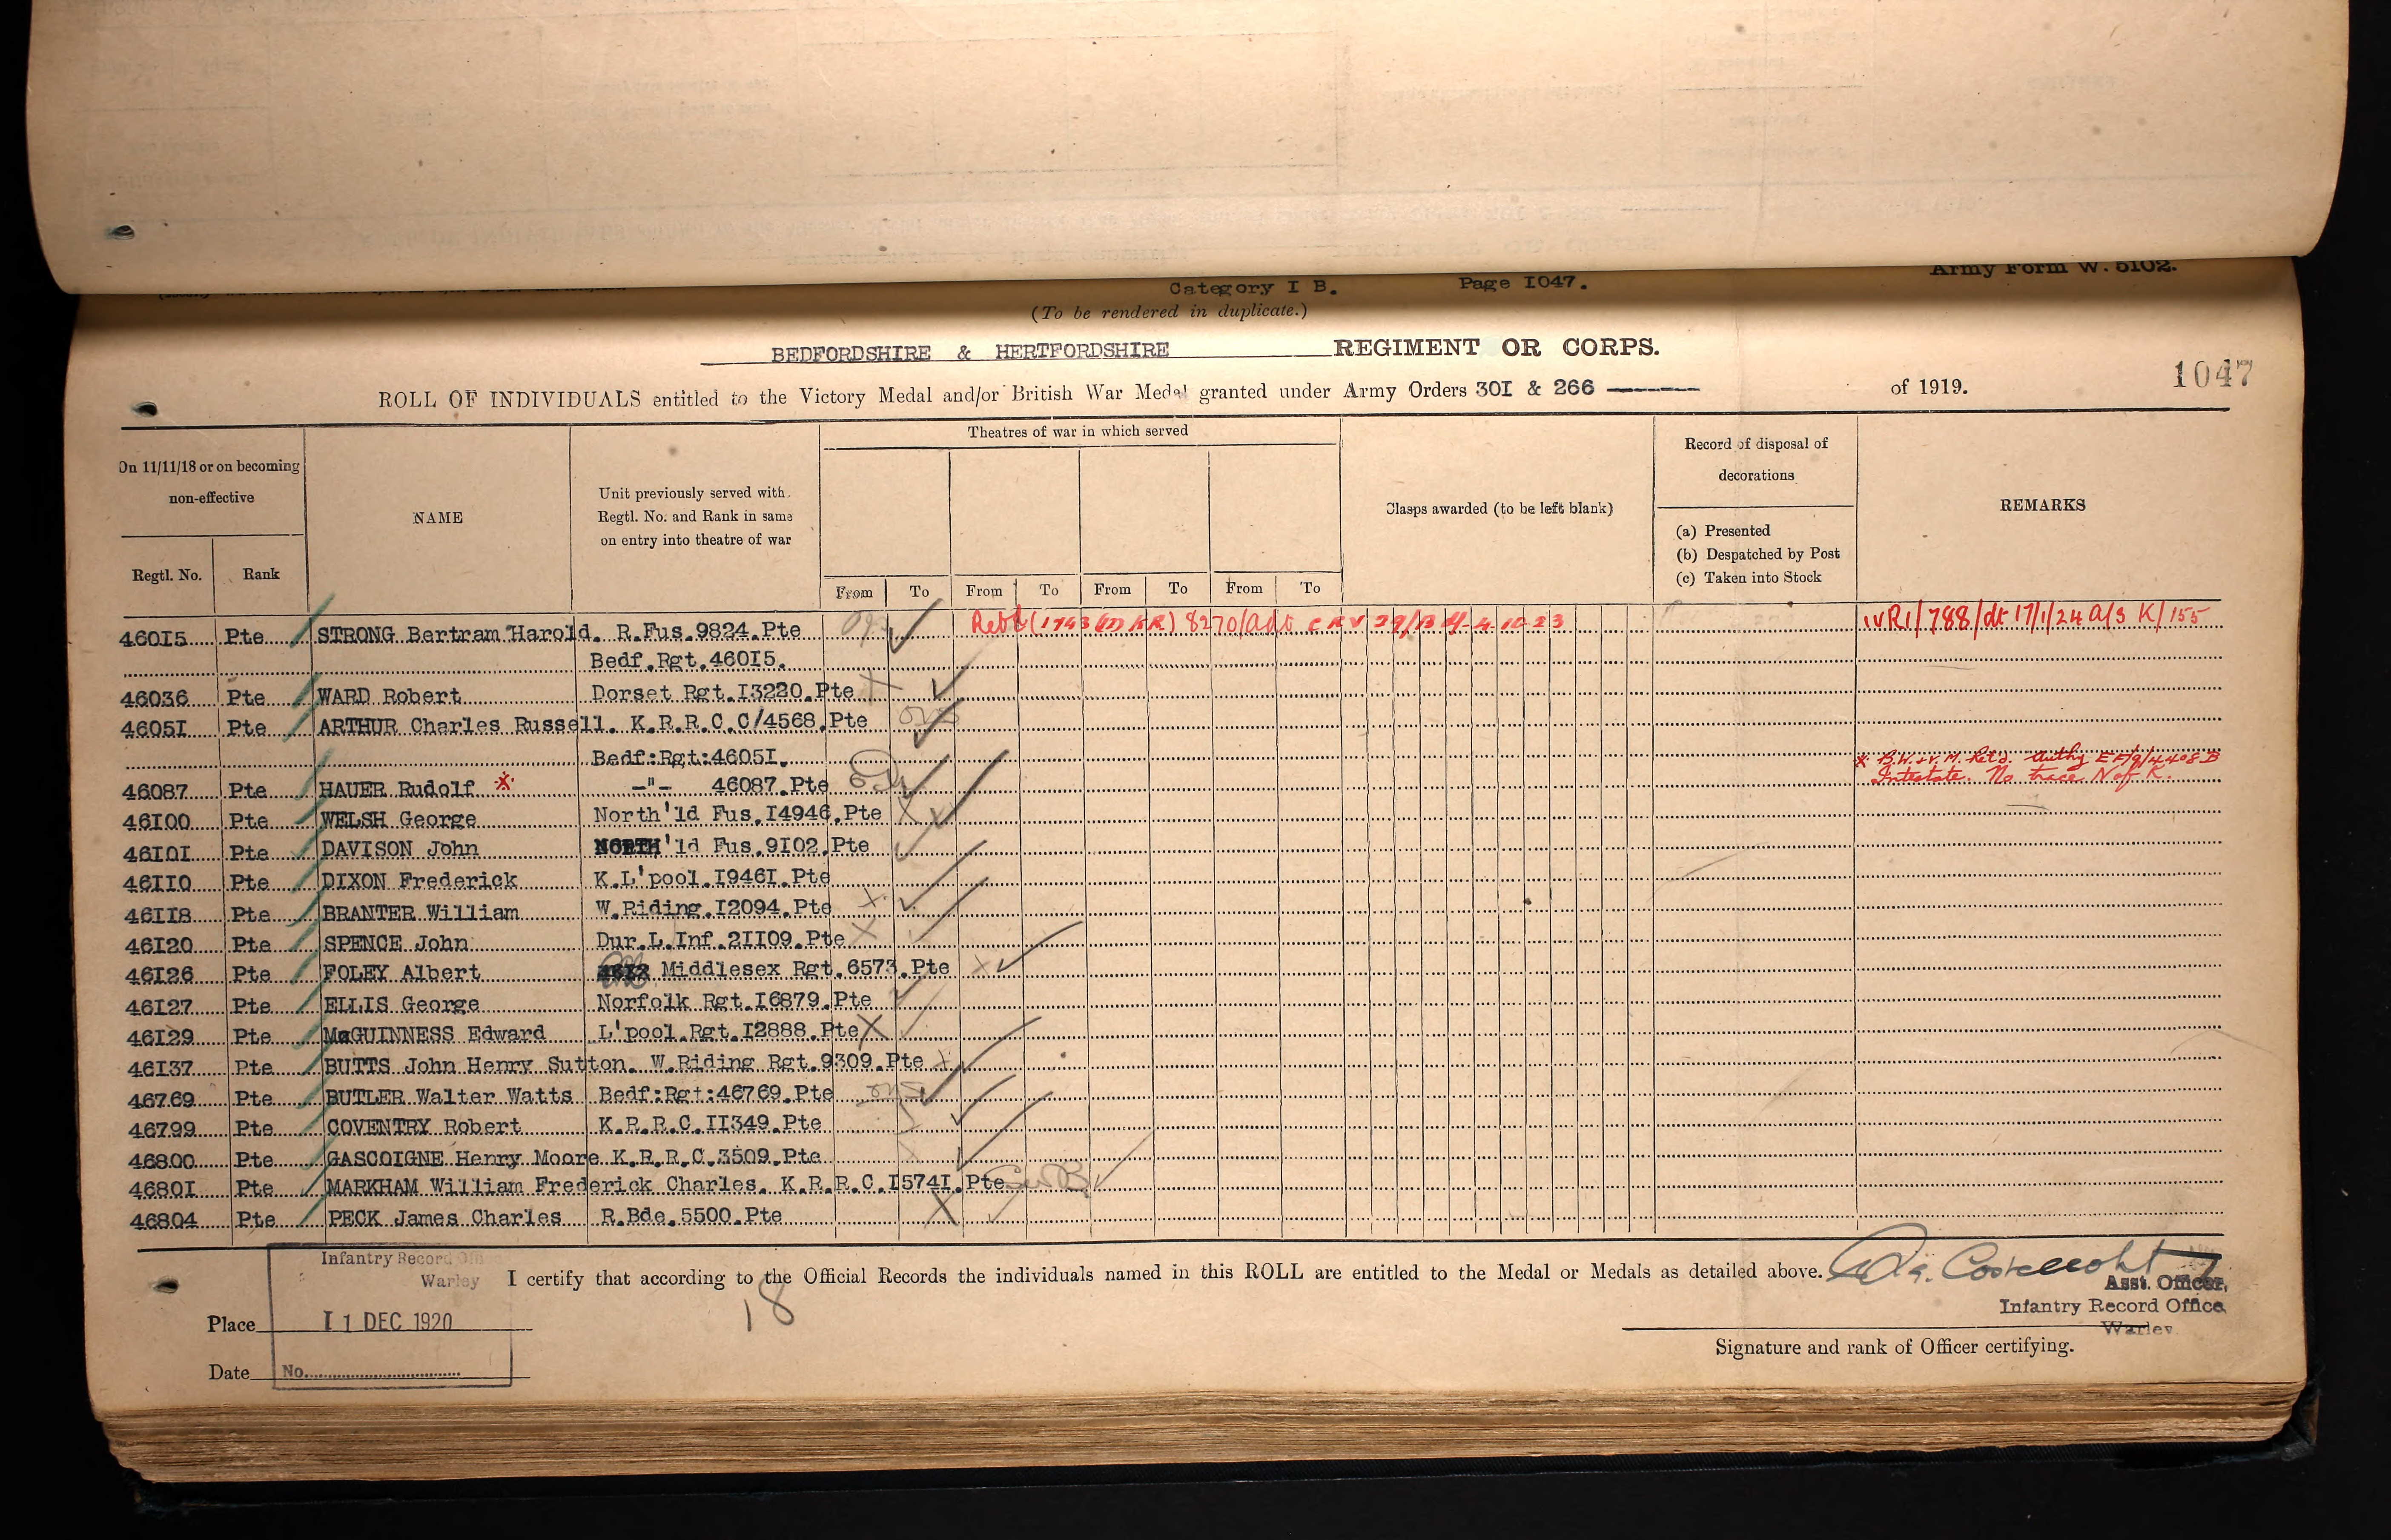 Army Form W. 5102.
Category I B. Page 1047.
(To be rendered in duplicate.)
BEDFORDSHIRE & HERTFORDSHIRE REGIMENT OR CORPS.
1047
ROLL OF INDIVIDUALS entitled to the Victory Medal and/or British War Medal granted under Army Orders 301 & 266 of 1919.
On 11/11/18 or on becoming non-effective
Regtl. No. Rank
NAME
Unit previously served with. Regtl. No. and Rank in same on entry into theatre of war
Theatres of war in which served
From To From To From To From To
Clasps awarded (to be left blank)
Record of disposal of decorations
(a) Presented
(b) Despatched by Post
(c) Taken into Stock
REMARKS
46015 Pte STRONG Bertram Harold. R.Fus.9824.Pte 8270/Adt 4-10-23 IVR1/788/dt 17/1/24 A/S K/155
Bedf.Rgt.46015.
46036 Pte WARD Robert Dorset Rgt.13220.Pte
46051 Pte ARTHUR Charles Russell. K.R.R.C.C/4568.Pte
Bedf:Rgt:46051.
* B.W. & V.M. Ret'd. Authy EF/9/4408B
46087 Pte HAUER Rudolf * -"- 46087.Pte Intestate. No trace N of K.
46100 Pte WELSH George North'ld Fus.14946.Pte
46101 Pte DAVISON John NORTH'ld Fus.9102.Pte
46110 Pte DIXON Frederick K.L'pool.19461.Pte
46118 Pte BRANTER William W.Riding.12094.Pte
46120 Pte SPENCE John Dur.L.Inf.21109.Pte
46126 Pte FOLEY Albert Middlesex Rgt.6573.Pte
46127 Pte ELLIS George Norfolk Rgt.16879.Pte
46129 Pte McGUINNESS Edward L'pool.Rgt.12888.Pte
46137 Pte BUTTS John Henry Sutton. W.Riding Rgt.9309.Pte
46769 Pte BUTLER Walter Watts Bedf:Rgt:46769.Pte
46799 Pte COVENTRY Robert K.R.R.C.11349.Pte
46800 Pte GASCOIGNE Henry Moore K.R.R.C.3509.Pte
46801 Pte MARKHAM William Frederick Charles. K.R.R.C.15741.Pte
46804 Pte PECK James Charles R.Bde.5500.Pte
Infantry Record Office
Warley
I certify that according to the Official Records the individuals named in this ROLL are entitled to the Medal or Medals as detailed above.
18
Asst. Officer,
Infantry Record Office
Warley
Place 11 DEC 1920
Signature and rank of Officer certifying.
Date No.